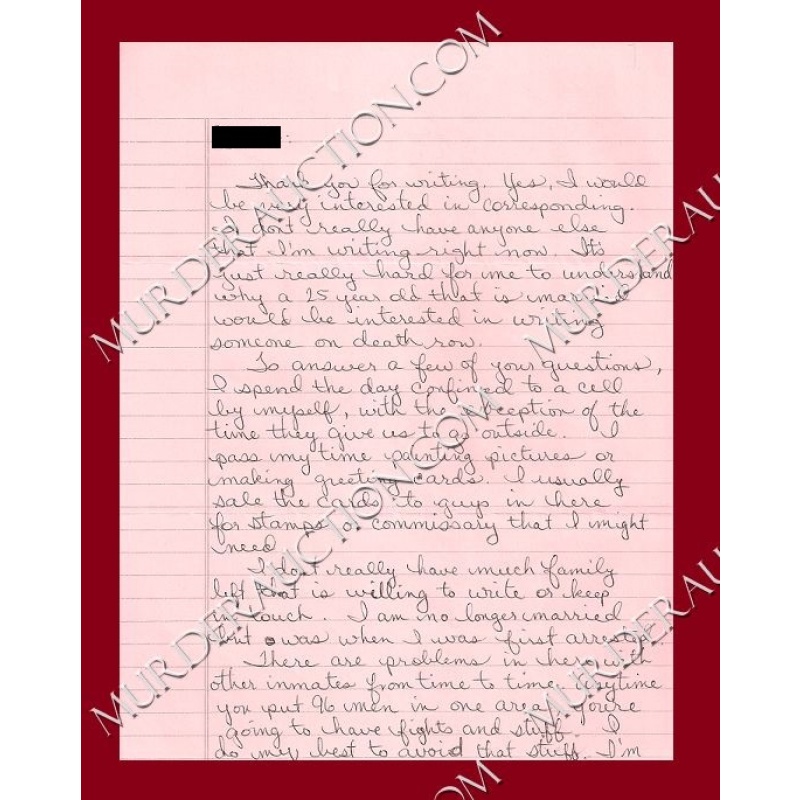 Thank you for writing. Yes, I would
be very interested in corresponding.
I dont really have anyone else
that I'm writing right now. It's
just really hard for me to understand
why a 25 year old that is married
would be interested in writing
someone on death row.
To answer a few of your questions,
I spend the day confined to a cell
by myself, with the exception of the
time they give us to go outside. I
pass my time painting pictures or
making greeting cards. I usually
sale the cards to guys in here
for stamps or commissary that I might
need.
I dont really have much family
left that is willing to write or keep
in touch. I am no longer married
but was when I was first arrested.
There are problems in here with
other inmates from time to time. Anytime
you put 96 men in one area you're
going to have fights and stuff. I
do my best to avoid that stuff. I'm
MURDERAUCTION.COM
MURDERAUCTION.COM
MURDERAUCTION.COM
MURDERAU
MURDERAU